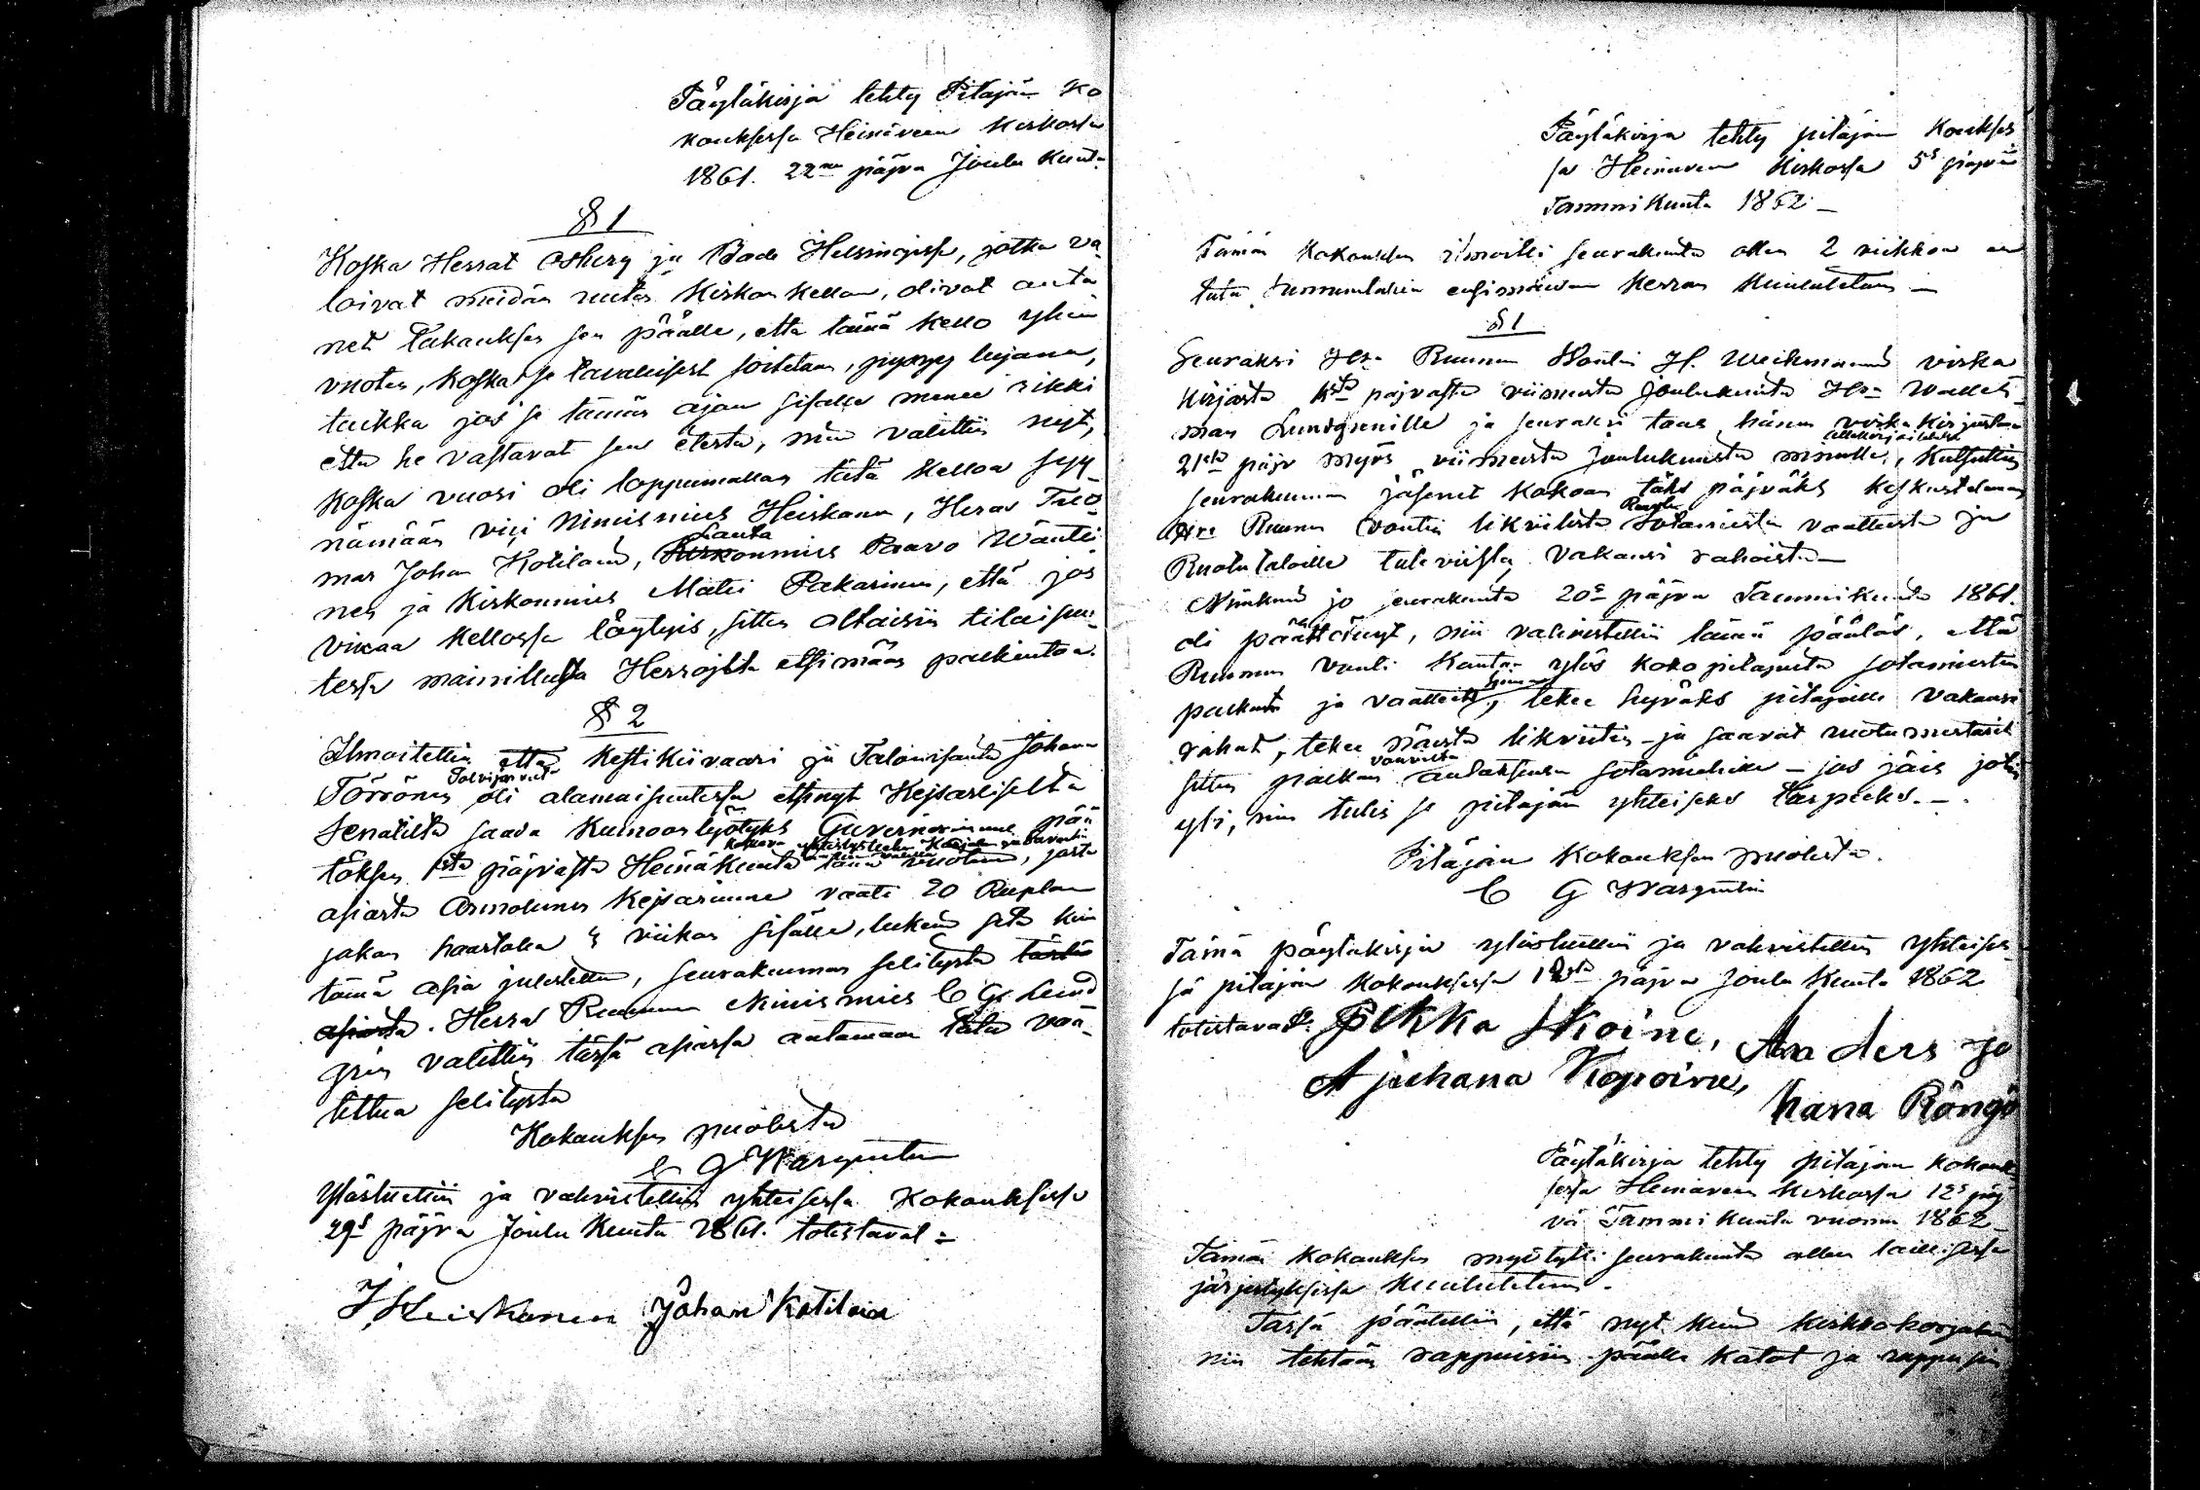 Päytäkirja tehty Pitäjän Ko
kouksessa Heinäveen Kirkossa
1861. 22na päjvä Joulu Kuuta
§ 1
Koska Herrat Osberg ja Bade Helsingissä, jotka va
loivat meidän uuden Kirkon Kellon, olivat anta
net Takauksen sen päälle, että tämä Kello yhen
vuoden, koska se tavallisest soitetaan, pysyy lujana,
taikka jos se tämän ajan sisälle menee rikki
että he vastavat sen edestä, niin valittiin nyt,
Koska vuosi oli loppumallan tätä Kelloa syy
nämään vici Nimismies Heiskanen, Heras Tuo
mar Johan Kotilain, Lauta
Kirkonmies Paavo Wänti
nen ja Kirkonmies Matti Pakarinen, että jos
vikaa Kellossa löytyis, sitten oltaisiin tilaisuu
tessa mainituista Herrojsta etsimään palkintoa.
§ 2
Ilmoitettiin että Kestikiivaari ja Talonisäntä Johan
Törrönen Polvijärveltä oli alamaisuutessa etsinyt Kejsarliselta
Senatilta saada Kumoon lyötyks Guvernörimme pää
töksen 1stä päjvästä Heinäkuuta tänä vuotena, josta
asiasta Armolinen Kejsarimme vaati 20 Ruplan
sakon haastolla 4 viikon sisälle, lukein siitä kuin
tämä asia julistettu, seurakunnan selitystä tästä
asiasta. Herra Ruunun Nimismies C G Lind
gren valittiin tässä asiassa antamaan tätä vaa
tittua selitystä
Kokouksen puolesta
C G Wargentin
Ylösluettiin ja vahvistettiin yhteisessä Kokouksessa
29s päjvä Joulu Kuuta 1861. totistavat =
J. Heiskanen Johan Kotilain
Päytäkirja tehty pitäjän Koukses
sa Heinäveen Kirkossa 5s päjvä
Tammi Kuuta 1862 —
Tämän Kokouksen ilmoitti seurakunta ollen 2 viikkoa
ensimäisen Kerran Kuulutetun —
§ 1
Seuraksi Hra Ruunun Woudin H. Weikmannin virka
Kirjasta päjvästä viimeista Joulukuuta Hra Walles
man Lundgrenille ja seuraksi taas hänen virka Kirjasta
21stä päjv myös viimeista Joulukuusta minulle, Kutsuttiin
seurakunnan jäsenet Kokoon täks päjväks Keskustelemaan
Hra Ruunun voutin likviidista Ruotu Sotamiesten vaatteista ja
Ruotutaloille tulevista Vakansi rahoista —
Niinkuin jo seurakunta 20s päjvä Tammikuuta 1861.
oli päättänyt, niin vahvistettiin tämä päätös, että
Ruunun vouti Kantaa ylös koko pitäjästä sotamiesten
palkat ja vaatteet, tekee hyväks pitäjälle vakansi
rahat, tekee näistä likviidin — ja saavat ruotumestarit
sitten palkan autaksensa sotamiehille — jos jäis jotain
yli, niin tulis se pitäjän yhteiseks tarpeeks. —.
Pitäjän Kokouksen puolesta.
C G Wargentin
Tämä päytäkirja ylösluettiin ja vahvistettiin yhteises
sä pitäjän Kokouksessa 12sta päjvä Joulu Kuuta 1862
totistavat. Pekka Ikoine, Anders ju
A juhana Kopoine, hana Röngö
Päytäkirja tehty pitäjän Kokouk
sessa Heinäveen Kirkossa 12s päj
vä Tammi Kuuta vuonna 1862 —
Tämän Kokouksen myötyksi seurakunta ollen laillisessa
järjestyksessä Kuulutetun.
Tässä päätettiin, että nyt kuin kirkko korjataan
niin tehtään rappuisiin päälle katot ja rappusiin